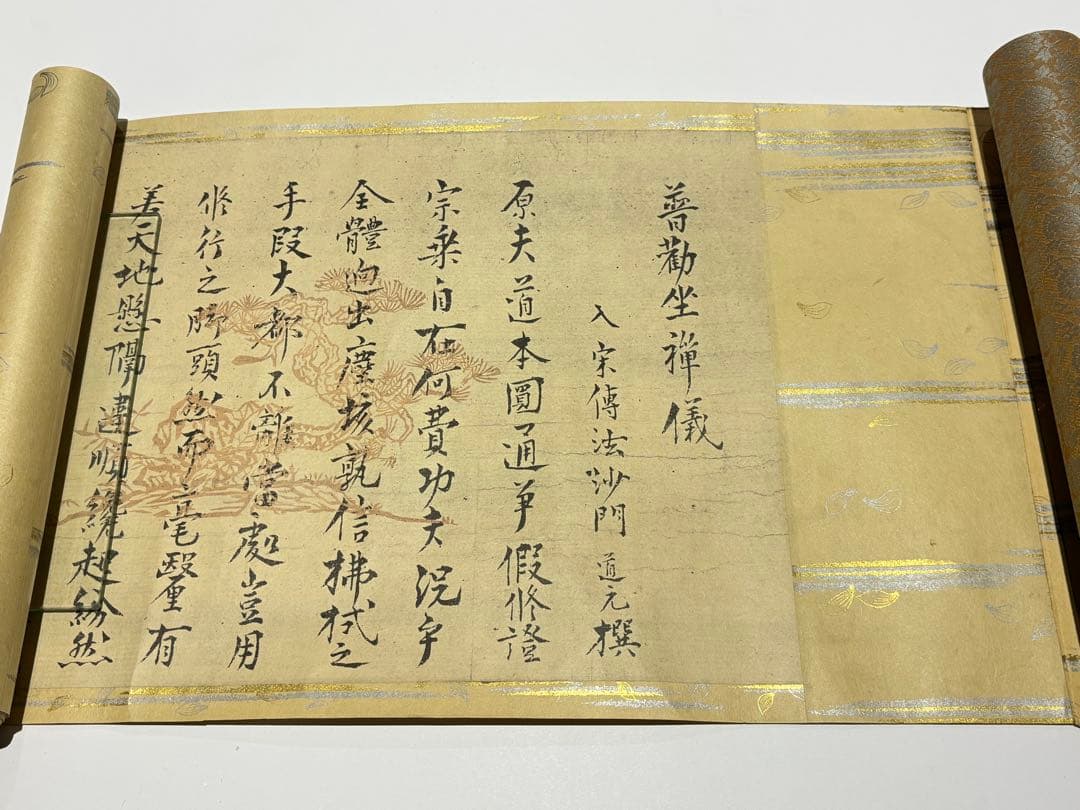 普勸坐禪儀
入宋傳法沙門道元撰
原夫道本圓通爭假修證
宗乗自在何費功夫況乎
全體逈出塵埃孰信拂拭之
手段大都不離當處豈用
修行之脚頭然而毫釐有
差天地懸隔違順纔起紛然